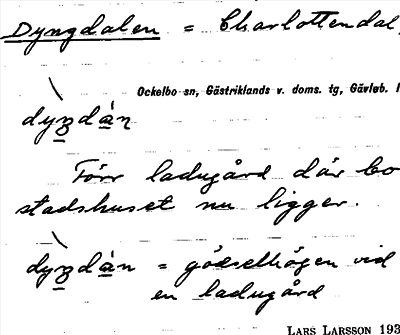 Dyngdalen = Charlottendal,
Ockelbo sn, Gästriklands v. doms. tg, Gävleb. l
dyndàn
Förr ladugård där bo
stadshuset nu ligger.
dyndàn = gödselhögen vid
en ladugård
LARS LARSSON 193